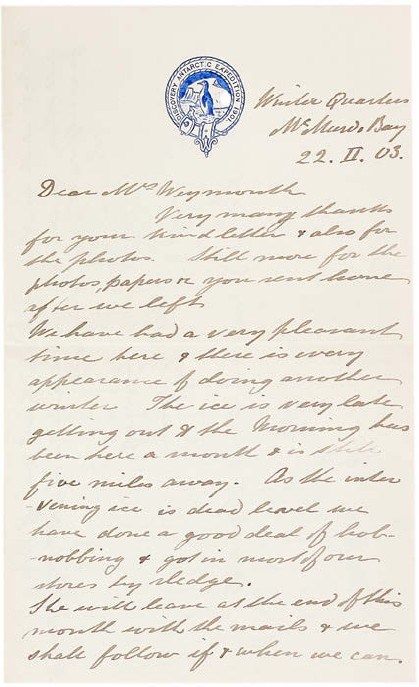 DISCOVERY ANTARCTIC EXPEDITION 1901
Winter Quarters
McMurdo Bay
22. II. 03.
Dear Mrs Weymouth
Very many thanks
for your kind letter & also for
the photos. Still more for the
photos, papers &c you sent home
after we left
We have had a very pleasant
time here & there is every
appearance of doing another
winter The ice is very late
getting out & the Morning has
been here a month & is still
five miles away. As the inter
-vening ice is dead level we
have done a good deal of hob-
-nobbing & got in most of our
stores by sledge.
She will leave at the end of this
month with the mails & we
shall follow if & when we can.